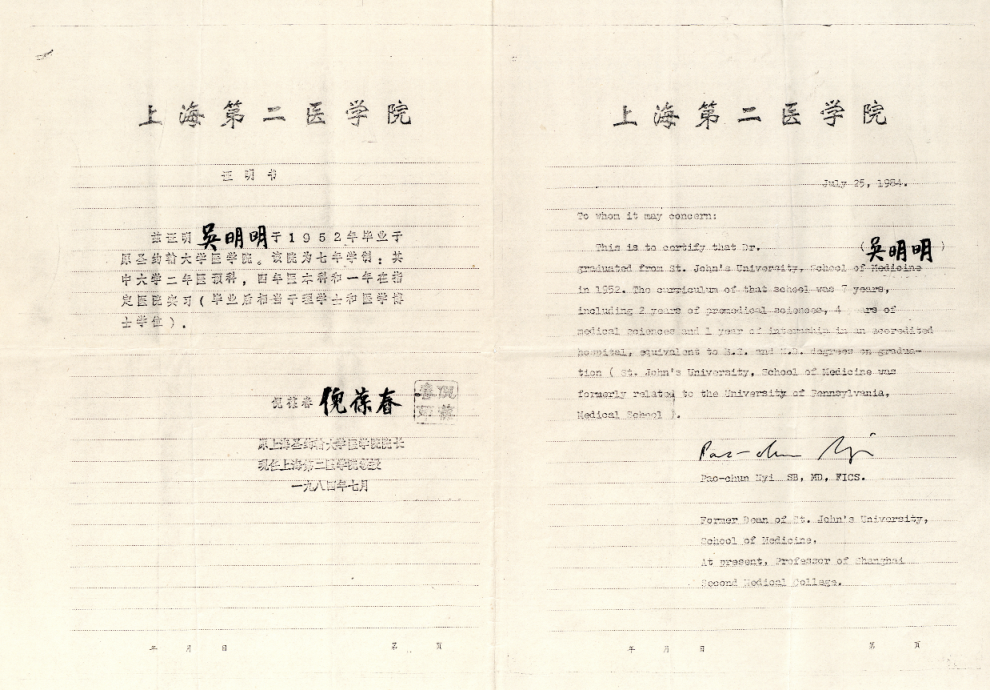 上海第二医学院
证明书
兹证明吴明明于1952年毕业于
原圣约翰大学医学院。该院为七年学制：其
中大学二年医预科，四年医本科和一年在指
定医院实习（毕业后相当于理学士和医学博
士学位）.
倪葆春 倪葆春
倪葆春印
原上海圣约翰大学医学院院长
现任上海第二医学院教授
一九八四年七月
年 月 日 第 页
上海第二医学院
July 25, 1984.
To whom it may concern:
This is to certify that Dr. (吴明明)
graduated from St. John's University, School of Medicine
in 1952. The curriculum of that school was 7 years,
including 2 years of premedical sciences, 4 years of
medical sciences and 1 year of internship in an accredited
hospital, equivalent to B.S. and M.D. degrees on gradua-
tion ( St. John's University, School of Medicine was
formerly related to the University of Pennsylvania,
Medical School ).
Pao-chun Nyi
Pao-chun Nyi SB, MD, FICS.
Former Dean of St. John's University,
School of Medicine.
At present, Professor of Shanghai
Second Medical College.
年 月 日 第 页